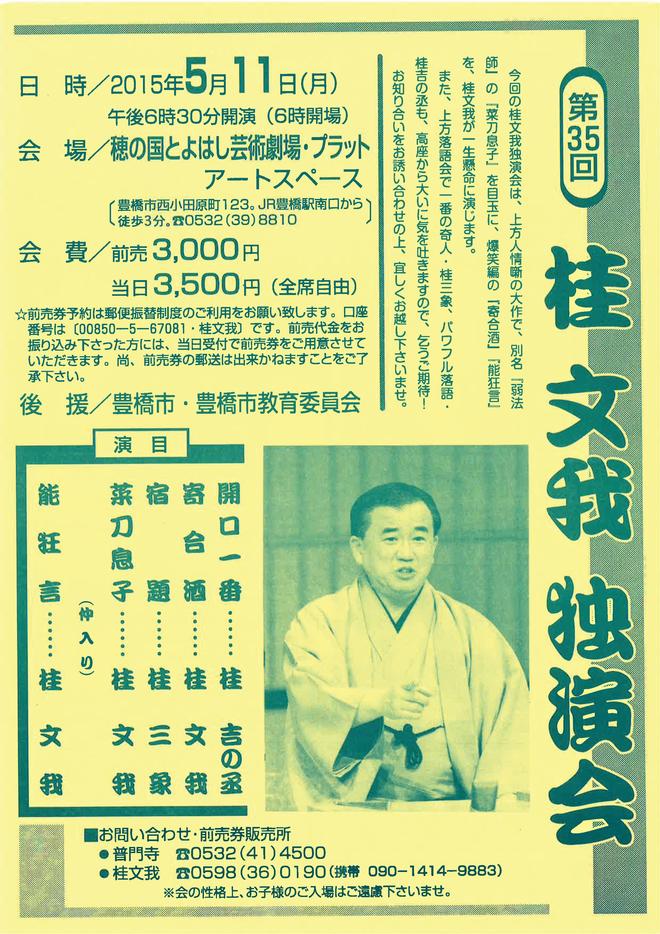 第35回
桂文我独演会
今回の桂文我独演会は、上方人情噺の大作で、別名『弱法
師』の『菜刀息子』を目玉に、爆笑編の『寄合酒』『能狂言』
を、桂文我が一生懸命に演じます。
また、上方落語会で一番の奇人・桂三象、パワフル落語・
桂吉の丞も、高座から大いに気を吐きますので、乞うご期待！
お知り合いをお誘い合わせの上、宜しくお越し下さいませ。
日　時／2015年5月11日(月)
午後6時30分開演（6時開場）
会　場／穂の国とよはし芸術劇場・プラット
アートスペース
豊橋市西小田原町123。JR豊橋駅南口から
徒歩3分。☎0532(39)8810
会　費／前売3,000円
当日3,500円（全席自由）
☆前売券予約は郵便振替制度のご利用をお願い致します。口座
番号は〔00850―5―67081・桂文我〕です。前売代金をお
振り込み下さった方には、当日受付で前売券をご用意させて
いただきます。尚、前売券の郵送は出来かねますことをご了
承下さい。
後　援／豊橋市・豊橋市教育委員会
演　目
開口一番……桂　吉の丞
寄合酒……桂　文我
宿　題……桂　三象
菜刀息子……桂　文我
（仲入り）
能狂言……桂　文我
■お問い合わせ・前売券販売所
●普門寺　☎0532(41)4500
●桂文我　☎0598(36)0190(携帯 090−1414−9883)
※会の性格上、お子様のご入場はご遠慮下さいませ。